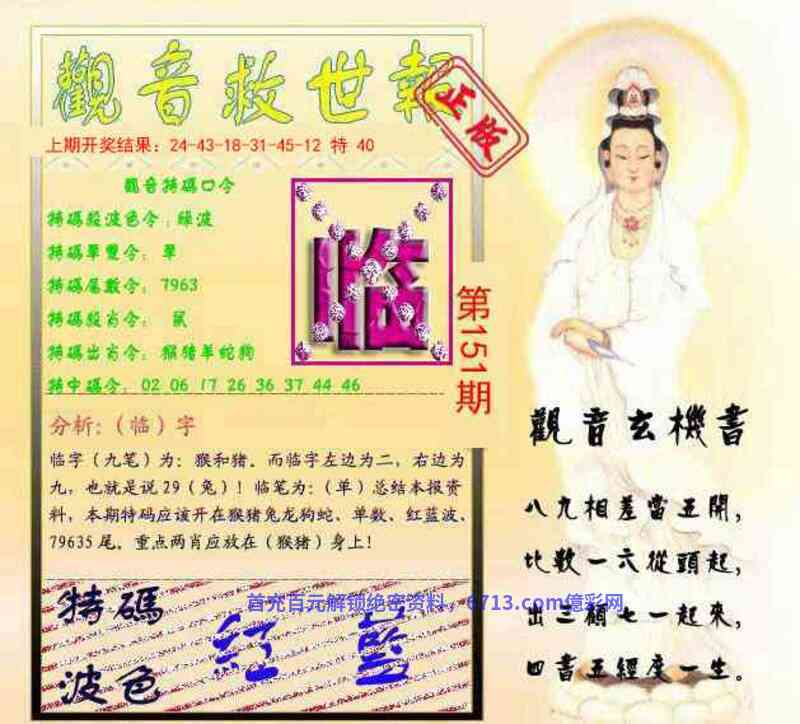 觀音救世報
正版
上期开奖结果：24-43-18-31-45-12 特 40
觀音特碼口令
特碼殺波色令：綠波
特碼單雙令：單
特碼尾數令：7963
特碼殺肖令：鼠
特碼出肖令：猴猪羊蛇狗
特中碼令：02 06 17 26 36 37 44 46
临
第151期
分析:（临）字
临字（九笔）为：猴和猪。而临字左边为二，右边为
九，也就是说29（兔）！临笔为：（单）总结本报资
料，本期特码应该开在猴猪兔龙狗蛇、单数、红蓝波、
79635尾。重点两肖应放在（猴猪）身上！
特碼
波色
紅 藍
首充百元解锁绝密资料，6713.com億彩网
觀音玄機書
八九相差當五開，
比數一六從頭起，
出三顧七一起來，
四書五經度一生。